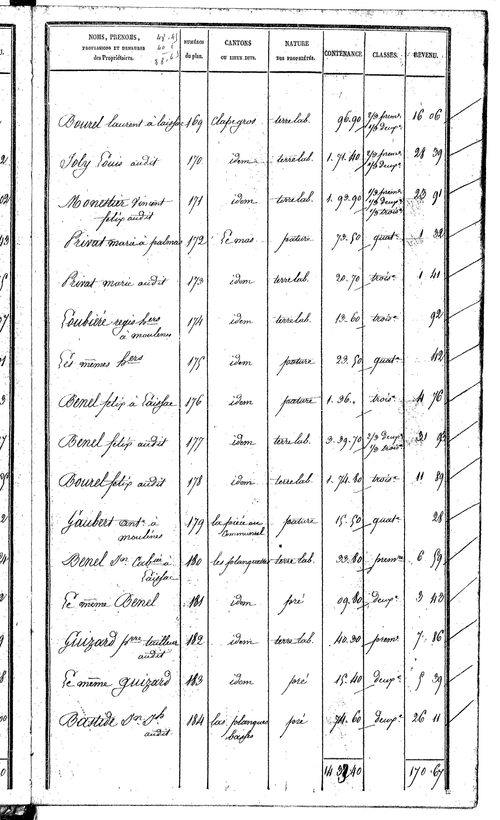 NOMS, PRENOMS, PROFESSIONS ET DEMEURES des Propriétaires. | NUMÉROS du plan. | CANTONS OU LIEUX DITS. | NATURE DES PROPRIÉTÉS. | CONTENANCE. | CLASSES. | REVENU.
Bourel laurent à laissac | 169 | Clapegros | terre lab. | 96.90 | 2/3 prem. 1/3 deux. | 16 06
Joly Louis audit | 170 | idem | terre lab. | 1.71.40 | 2/3 prem. 1/3 deux. | 28 39
Monestier Vincent | 171 | idem | terre lab. | 1.93.90 | 1/3 prem. 1/3 deux. 1/3 trois. | 23 91
felix audit
Privat marie à palmas | 172 | Le mas | pature | 73.50 | quat. | 1 32
Privat marie audit | 173 | idem | terre lab. | 20.70 | trois. | 1 41
Loubiére regis hers | 174 | idem | terre lab. | 13.60 | trois. | 92
à moulines
Les mêmes hers | 175 | idem | pature | 23.50 | quat. | 42
Benel felix à Laissac | 176 | idem | pature | 1.36. | trois. | 4 76
Benel felix audit | 177 | idem | terre lab. | 3.39.70 | 2/3 deux. 1/3 trois. | 31 93
Bourel felix audit | 178 | idem | terre lab. | 1.74.80 | trois. | 11 89
Gaubert ant. à | 179 | la | pature | 15.50 | quat. | 28
moulines | Communal
Benel à | 180 | les planquettes | terre lab. | 33.80 | prem. | 6 59
Laissac
Le même Benel | 181 | idem | pré | 09.80 | deux. | 3 43
Guizard pierre tailleur | 182 | idem | terre lab. | 40.30 | prem. | 7 86
audit
Le même Guizard | 183 | idem | pré | 15.40 | deux. | 5 39
Bastide | 184 | las planques | pré | 74.60 | deux. | 26 11
audit | basses
14 33.40 | 170.67